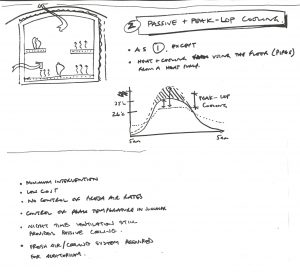 ② PASSIVE + PEAK-LOP COOLING
• AS ①, EXCEPT
• HEAT + COOLING USING THE FLOOR (PIPES)
FROM A HEAT PUMP.
25°C
PEAK-LOP
COOLING
5am
5am
• MINIMUM INTERVENTION
• LOW COST
• NO CONTROL OF FRESH AIR RATES
• CONTROL OF PEAK TEMPERATURE IN SUMMER
• NIGHT TIME VENTILATION STILL
PROVIDES PASSIVE COOLING.
• FRESH AIR/COOLING SYSTEM REQUIRED
FOR AUDITORIUM.